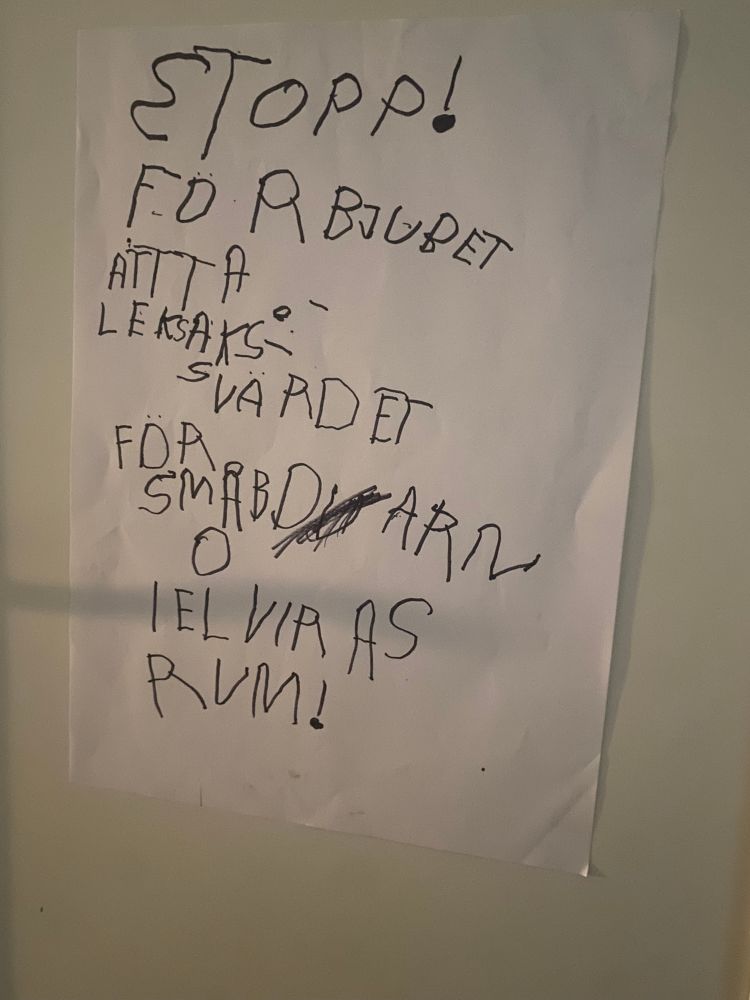 STOPP!
FÖRBJUDET
ATTTA
LEKSAKS-
SVÄRDET
FÖR
SMÅBDARN
O
IELVIRAS
RUM!